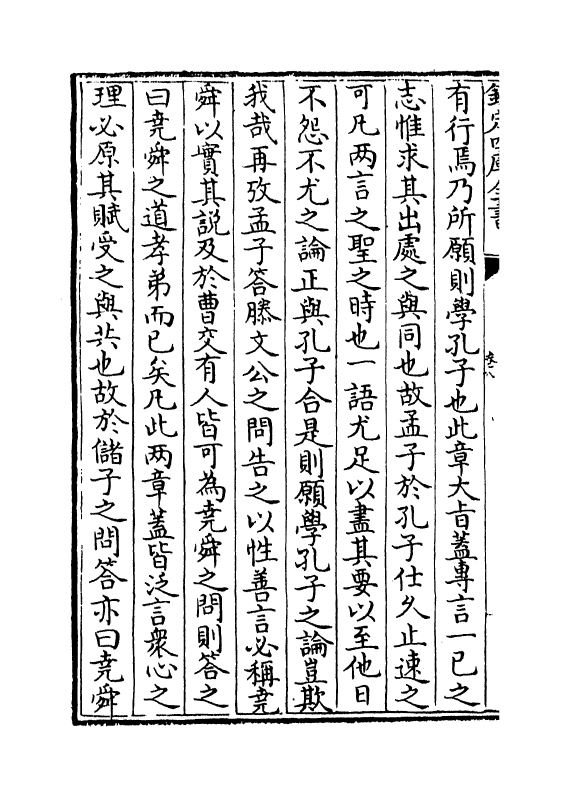 欽定四庫全書
卷八
有行焉乃所願則學孔子也此章大旨蓋專言一已之
志惟求其出處之與同也故孟子於孔子仕久止速之
可凡两言之聖之時也一語尤足以盡其要以至他日
不怨不尤之論正與孔子合是則願學孔子之論豈欺
我哉再攷孟子答滕文公之問告之以性善言必稱堯
舜以實其説及於曹交有人皆可為堯舜之問則答之
曰堯舜之道孝弟而已矣凡此两章蓋皆泛言衆心之
理必原其賦受之與共也故於儲子之問答亦曰堯舜